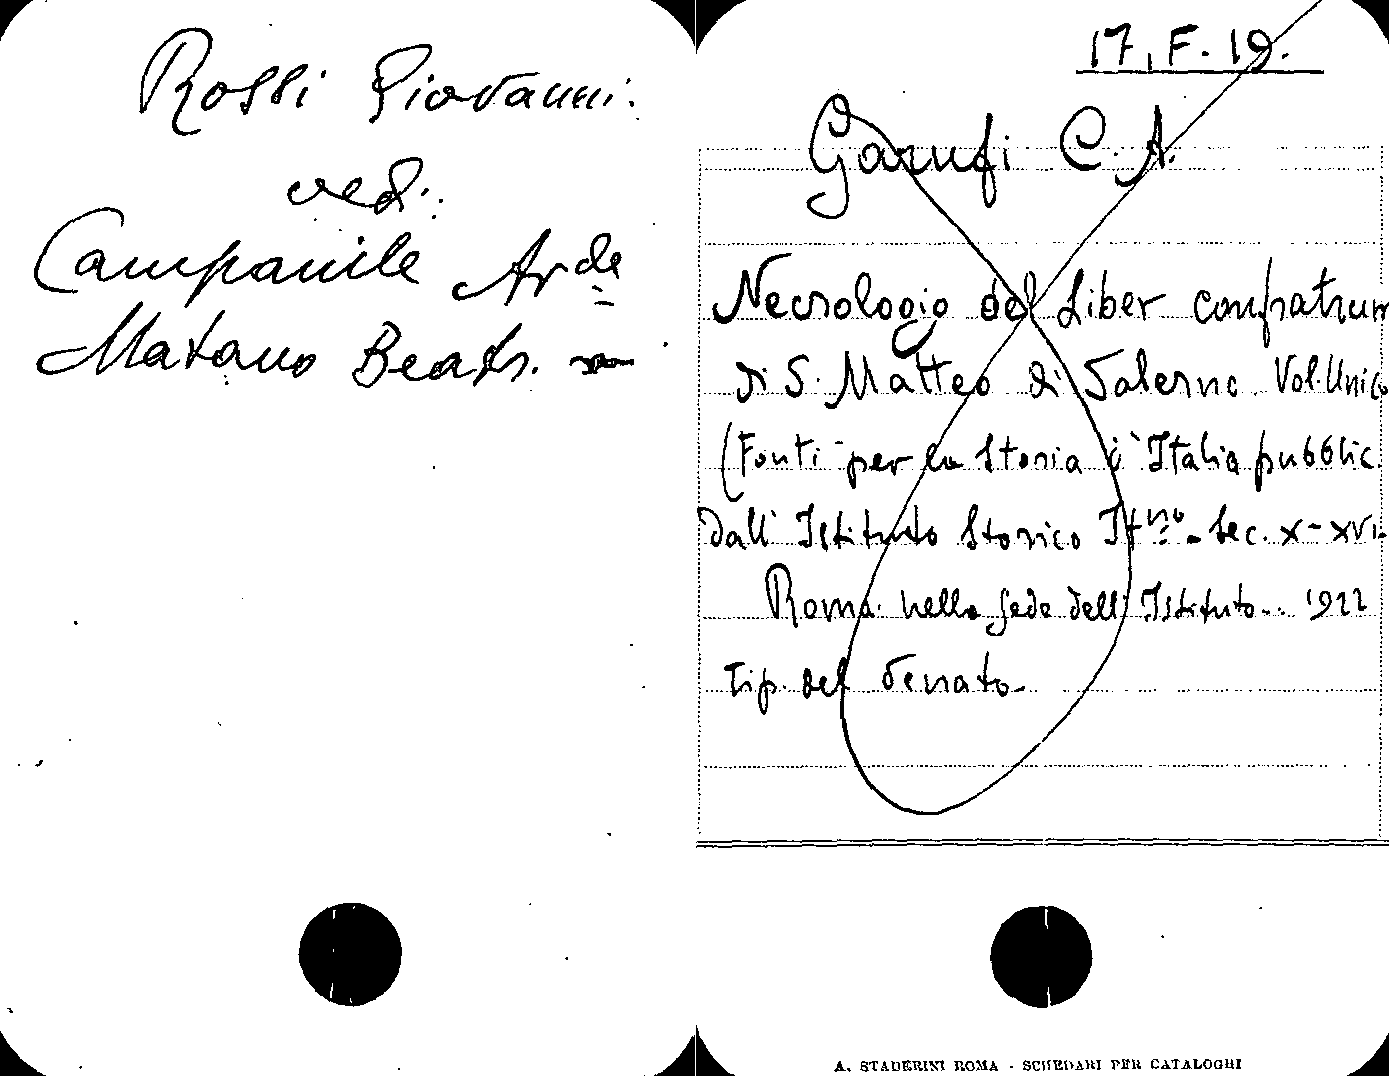 Rossi Giovanni.
ved:
Campanile Ar.da
Matano Beatr.
17. F. 19.
Garufi C. A.
Necrologio del Liber confratrum
di S. Matteo di Salerno Vol. Unico
(Fonti per la Storia d'Italia pubblic.
dall'Istituto Storico It.no - Sec. X-XVI.
Roma nella sede dell'Istituto. 1922
Tip. del Senato.
A. STADERINI ROMA - SCHEDARI PER CATALOGHI